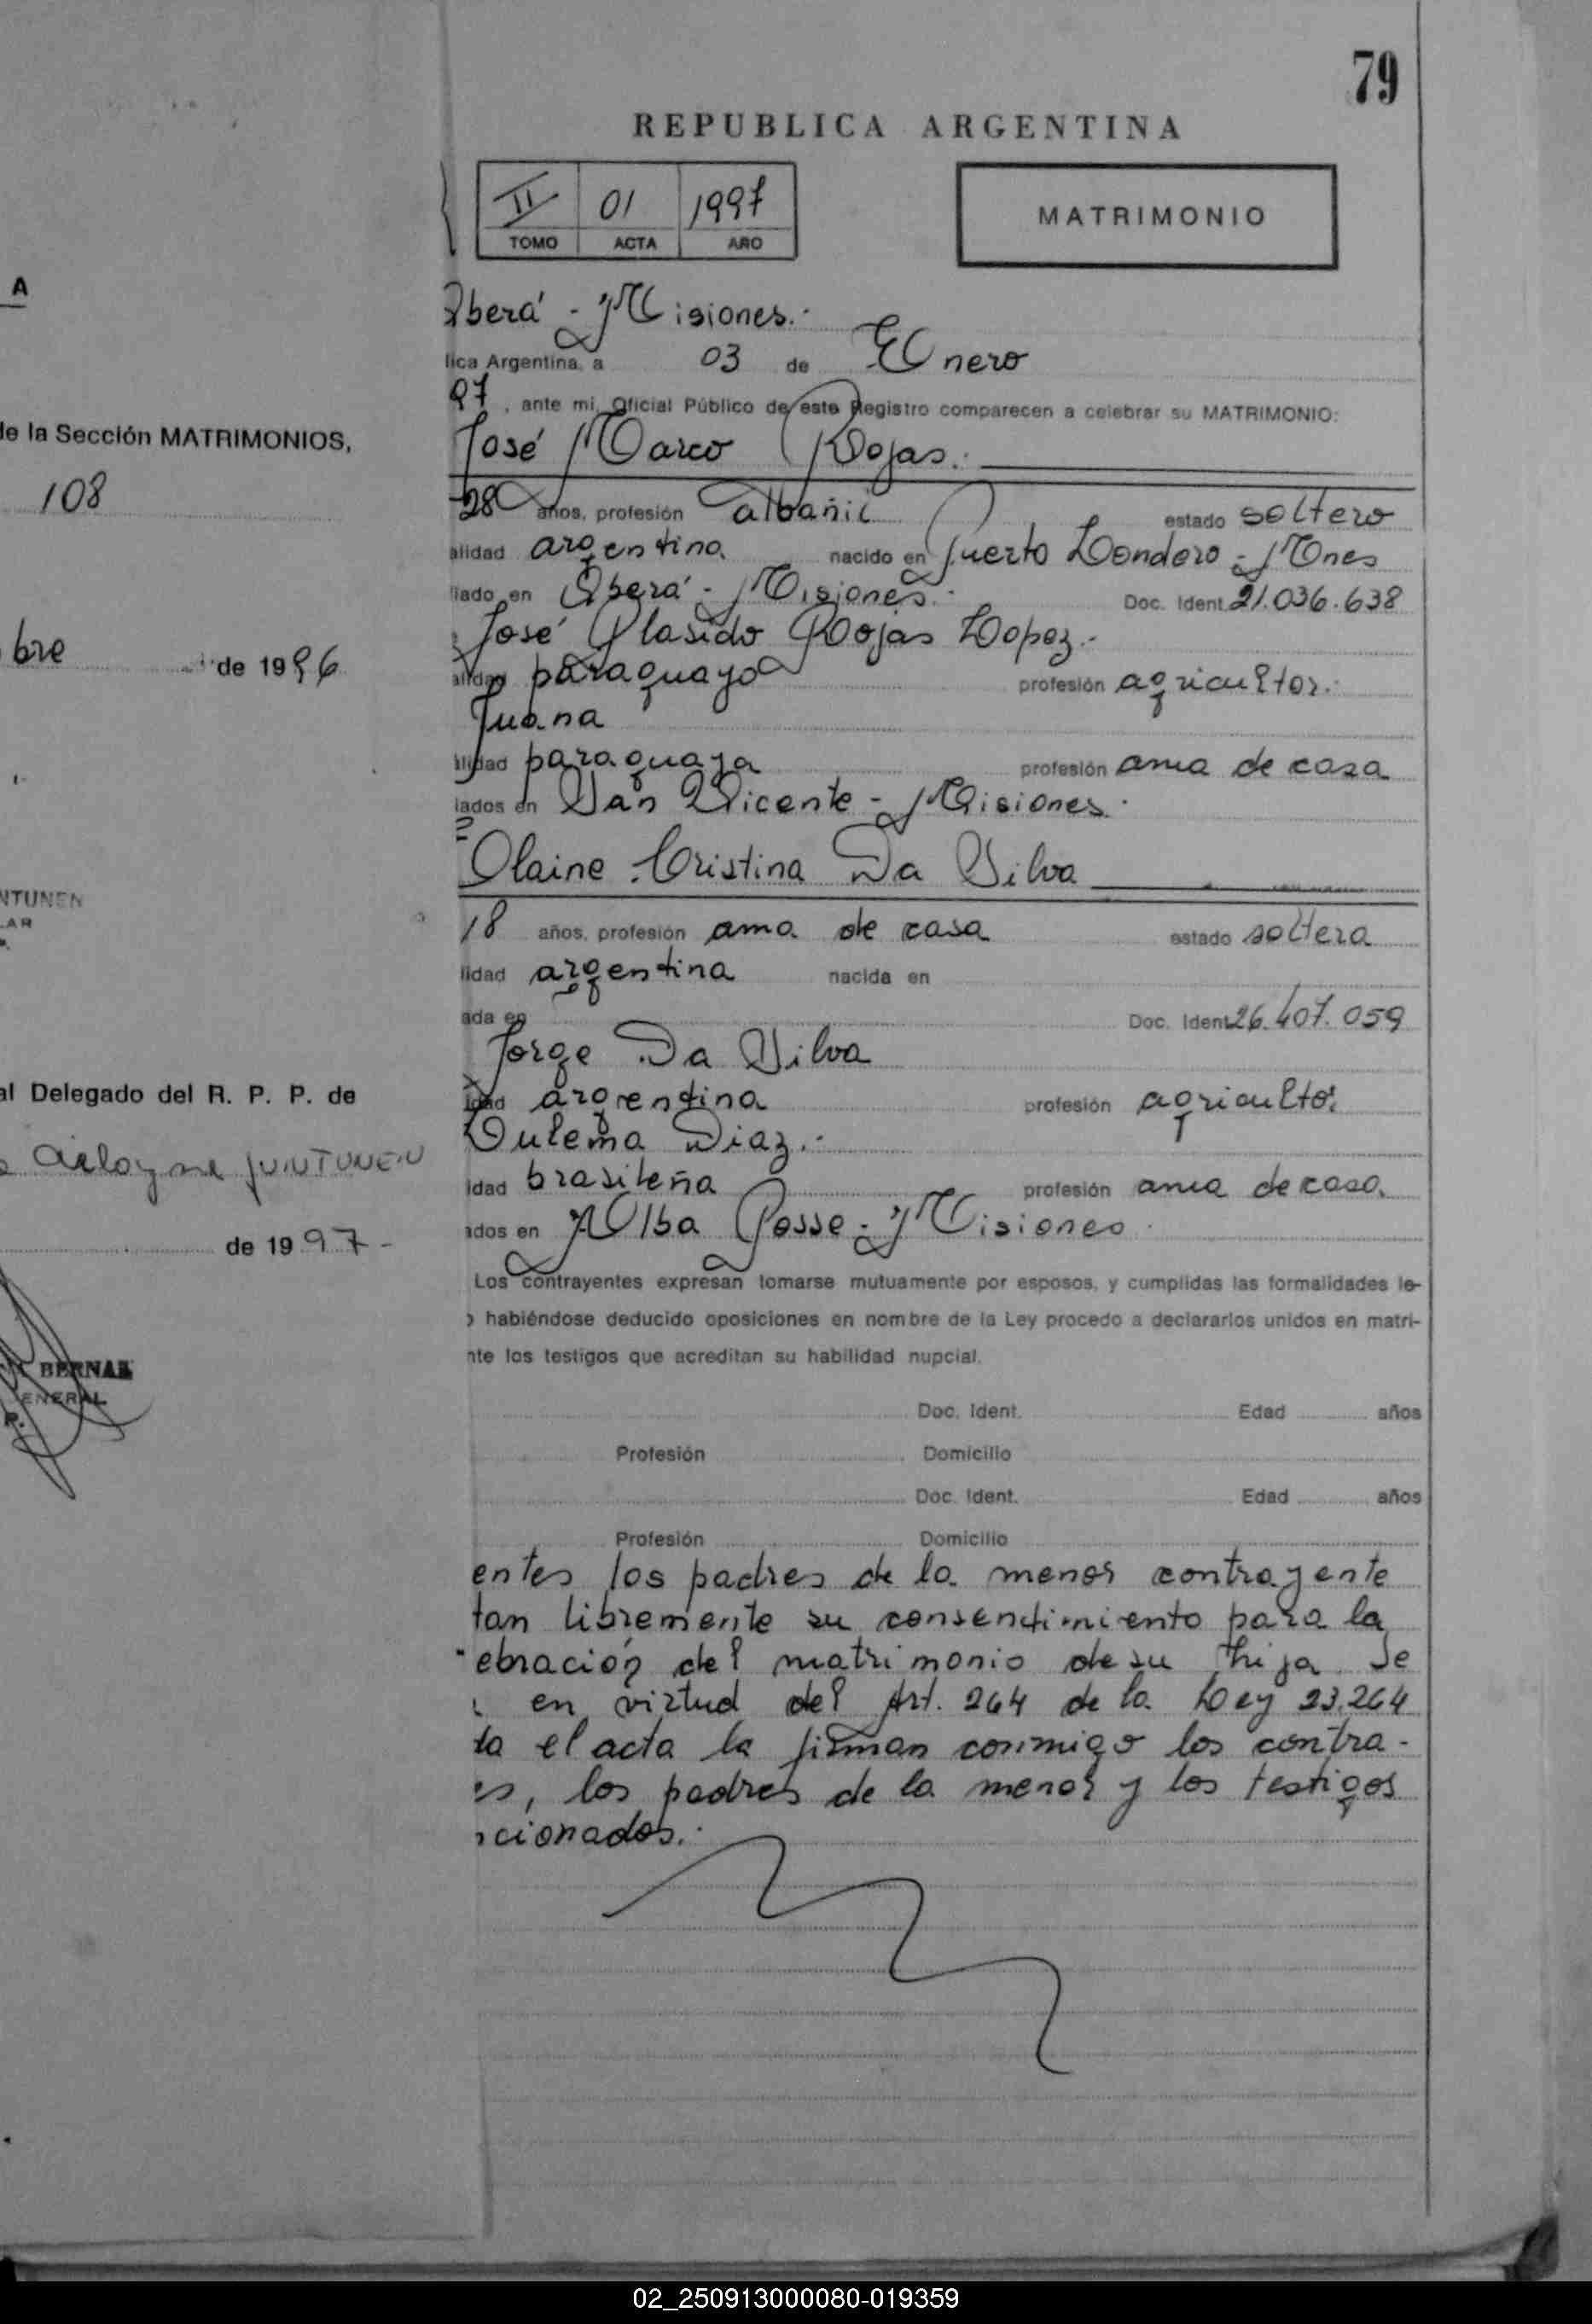 A
de la Sección MATRIMONIOS,
108
bre de 1996
NTUNEN
LAR
P.
al Delegado del R. P. P. de
JUNTUNEN
de 1997-
BERNAL
ENERAL
P.
79
REPUBLICA ARGENTINA
II 01 1997
TOMO ACTA AÑO
MATRIMONIO
Oberá - Misiones.-
lica Argentina, a 03 de Enero
97, ante mi, Oficial Público de este Registro comparecen a celebrar su MATRIMONIO:
José Marco Rojas.-
28 años, profesión albañil estado soltero
alidad argentina nacido en Puerto Londero - Mnes
liado en Oberá - Misiones.- Doc. Ident. 21.036.638
José Plasido Rojas Lopez.-
alidad paraguayo profesión agricultor.-
Juana
alidad paraguaya profesión ama de casa
iados en San Vicente - Misiones.
Olaine Cristina Da Silva
18 años, profesión ama de casa estado soltera
lidad argentina nacida en
ada en Doc. Ident. 26.407.059
Jorge Da Silva
idad argentina profesión agricultor
Zulema Diaz.-
idad brasileña profesión ama de casa
ados en Alba Posse - Misiones.
Los contrayentes expresan tomarse mutuamente por esposos, y cumplidas las formalidades le-
o habiéndose deducido oposiciones en nombre de la Ley procedo a declararlos unidos en matri-
nte los testigos que acreditan su habilidad nupcial.
Doc. Ident. Edad años
Profesión Domicilio
Doc. Ident. Edad años
Profesión Domicilio
entes los padres de la menor contrayente
tan libremente su consentimiento para la
ebración del matrimonio de su hija Se
en virtud del Art. 264 de la Ley 23.264
da el acta la firman conmigo los contra-
es, los padres de la menor y los testigos
cionados.-
02_250913000080-019359